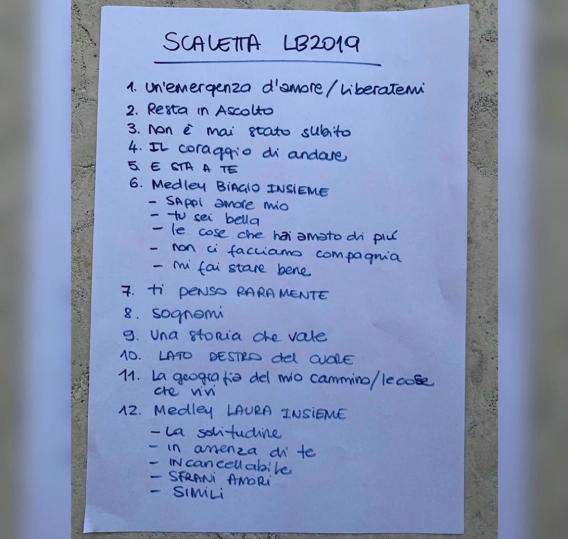 SCALETTA LB2019
1. un'emergenza d'amore/Liberatemi
2. Resta in Ascolto
3. non è mai stato subito
4. IL coraggio di andare
5. E STA A TE
6. Medley BIAGIO INSIEME
- SAPPI amore mio
- tu sei bella
- le cose che hai amato di più
- non ci facciamo compagnia
- mi fai stare bene
7. ti PENSO RARAMENTE
8. sognami
9. Una storia che vale
10. LATO DESTRO del CUORE
11. La geografia del mio cammino/le cose
che vivi
12. Medley LAURA INSIEME
- La solitudine
- in assenza di te
- INcancellabile
- SFRANI AMORI
- SIMILI